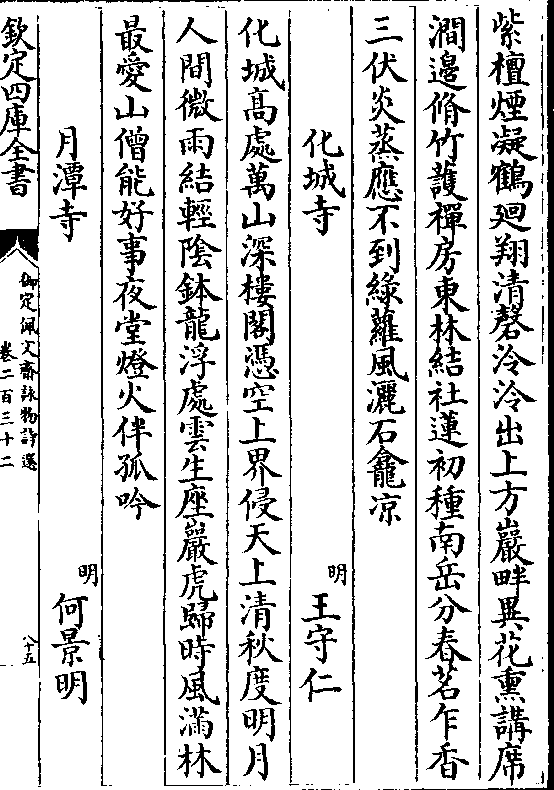 紫檀煙凝鶴廻翔清磬泠泠出上方巖畔異花熏講席
澗邊脩竹護禪房東林結社蓮初種南岳分春茗乍香
三伏炎蒸應不到綠蘿風灑石龕凉
化城寺 明 王守仁
化城高處萬山深樓閣憑空上界侵天上清秋度明月
人間微雨結輕陰鉢龍浮處雲生座巖虎歸時風滿林
最愛山僧能好事夜堂燈火伴孤吟
月潭寺 明 何景明
欽定四庫全書 御定佩文齋詠物詩選 卷二百三十二 八十五